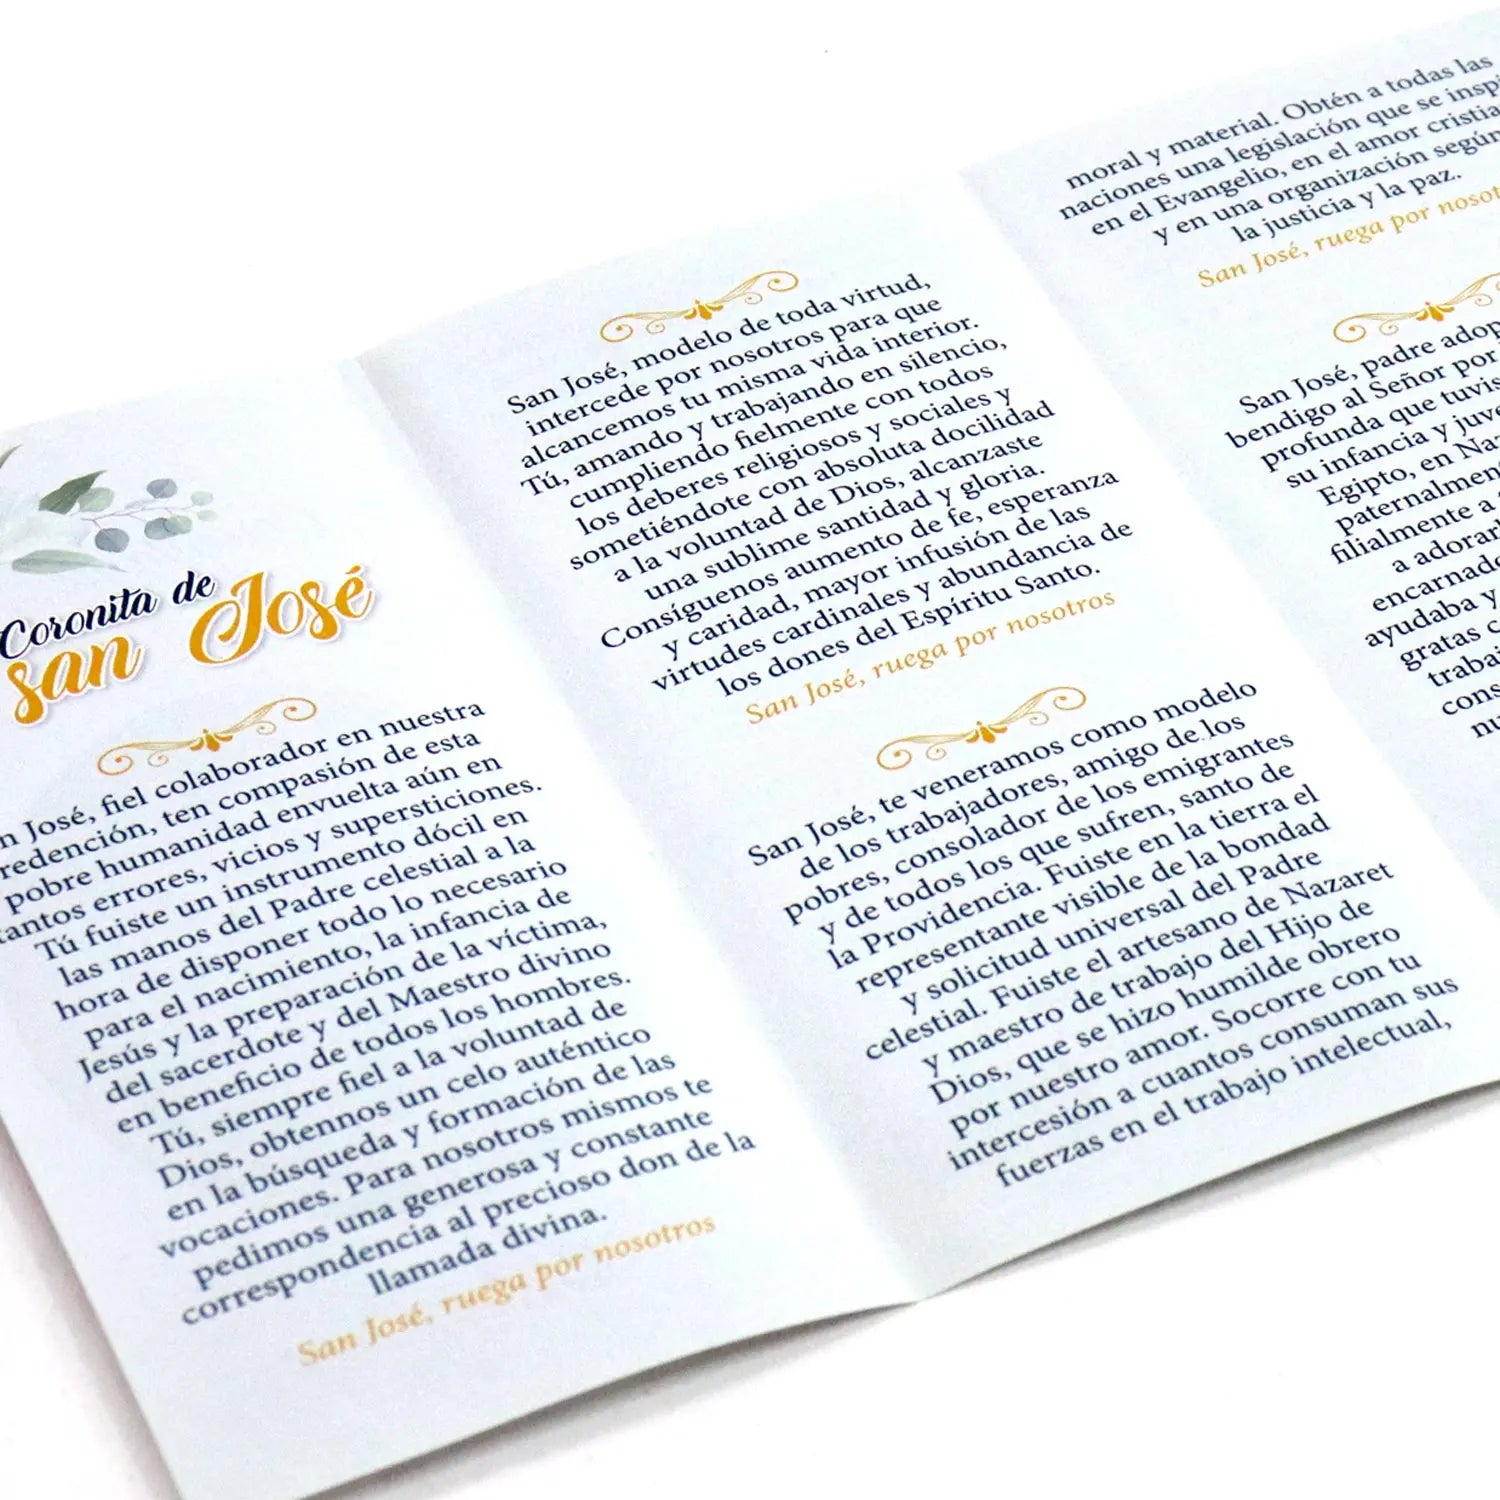 Coronita de
san José
San José, fiel colaborador en nuestra
redención, ten compasión de esta
pobre humanidad envuelta aún en
tantos errores, vicios y supersticiones.
Tú fuiste un instrumento dócil en
las manos del Padre celestial a la
hora de disponer todo lo necesario
para el nacimiento, la infancia de
Jesús y la preparación de la víctima,
del sacerdote y del Maestro divino
en beneficio de todos los hombres.
Tú, siempre fiel a la voluntad de
Dios, obtennos un celo auténtico
en la búsqueda y formación de las
vocaciones. Para nosotros mismos te
pedimos una generosa y constante
correspondencia al precioso don de la
llamada divina.
San José, ruega por nosotros
San José, modelo de toda virtud,
intercede por nosotros para que
alcancemos tu misma vida interior.
Tú, amando y trabajando en silencio,
cumpliendo fielmente con todos
los deberes religiosos y sociales y
sometiéndote con absoluta docilidad
a la voluntad de Dios, alcanzaste
una sublime santidad y gloria.
Consíguenos aumento de fe, esperanza
y caridad, mayor infusión de las
virtudes cardinales y abundancia de
los dones del Espíritu Santo.
San José, ruega por nosotros
San José, te veneramos como modelo
de los trabajadores, amigo de los
pobres, consolador de los emigrantes
y de todos los que sufren, santo de
la Providencia. Fuiste en la tierra el
representante visible de la bondad
y solicitud universal del Padre
celestial. Fuiste el artesano de Nazaret
y maestro de trabajo del Hijo de
Dios, que se hizo humilde obrero
por nuestro amor. Socorre con tu
intercesión a cuantos consuman sus
fuerzas en el trabajo intelectual,
moral y material. Obtén a todas las
naciones una legislación que se
en el Evangelio, en el amor
y en una organización según
la justicia y la paz.
San José, ruega por
San José, padre
bendigo al Señor por
profunda que
su infancia y
Egipto, en
filialmente a
a
ayudaba y
gratas